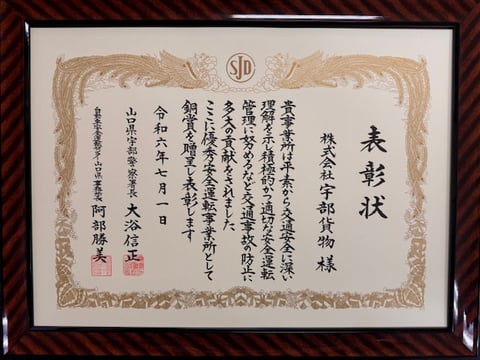 SJD
表彰状
株式会社宇部貨物 様
貴事業所は平素から交通安全に深い
理解を示し積極的かつ適切な安全運転
管理に努めるなど交通事故の防止に
多大の貢献をされました
ここに優秀安全運転事業所として
銅賞を贈呈し表彰します
令和六年七月一日
山口県宇部警察署長 大浴信正
自動車安全運転センター山口県事務所長 阿部勝美